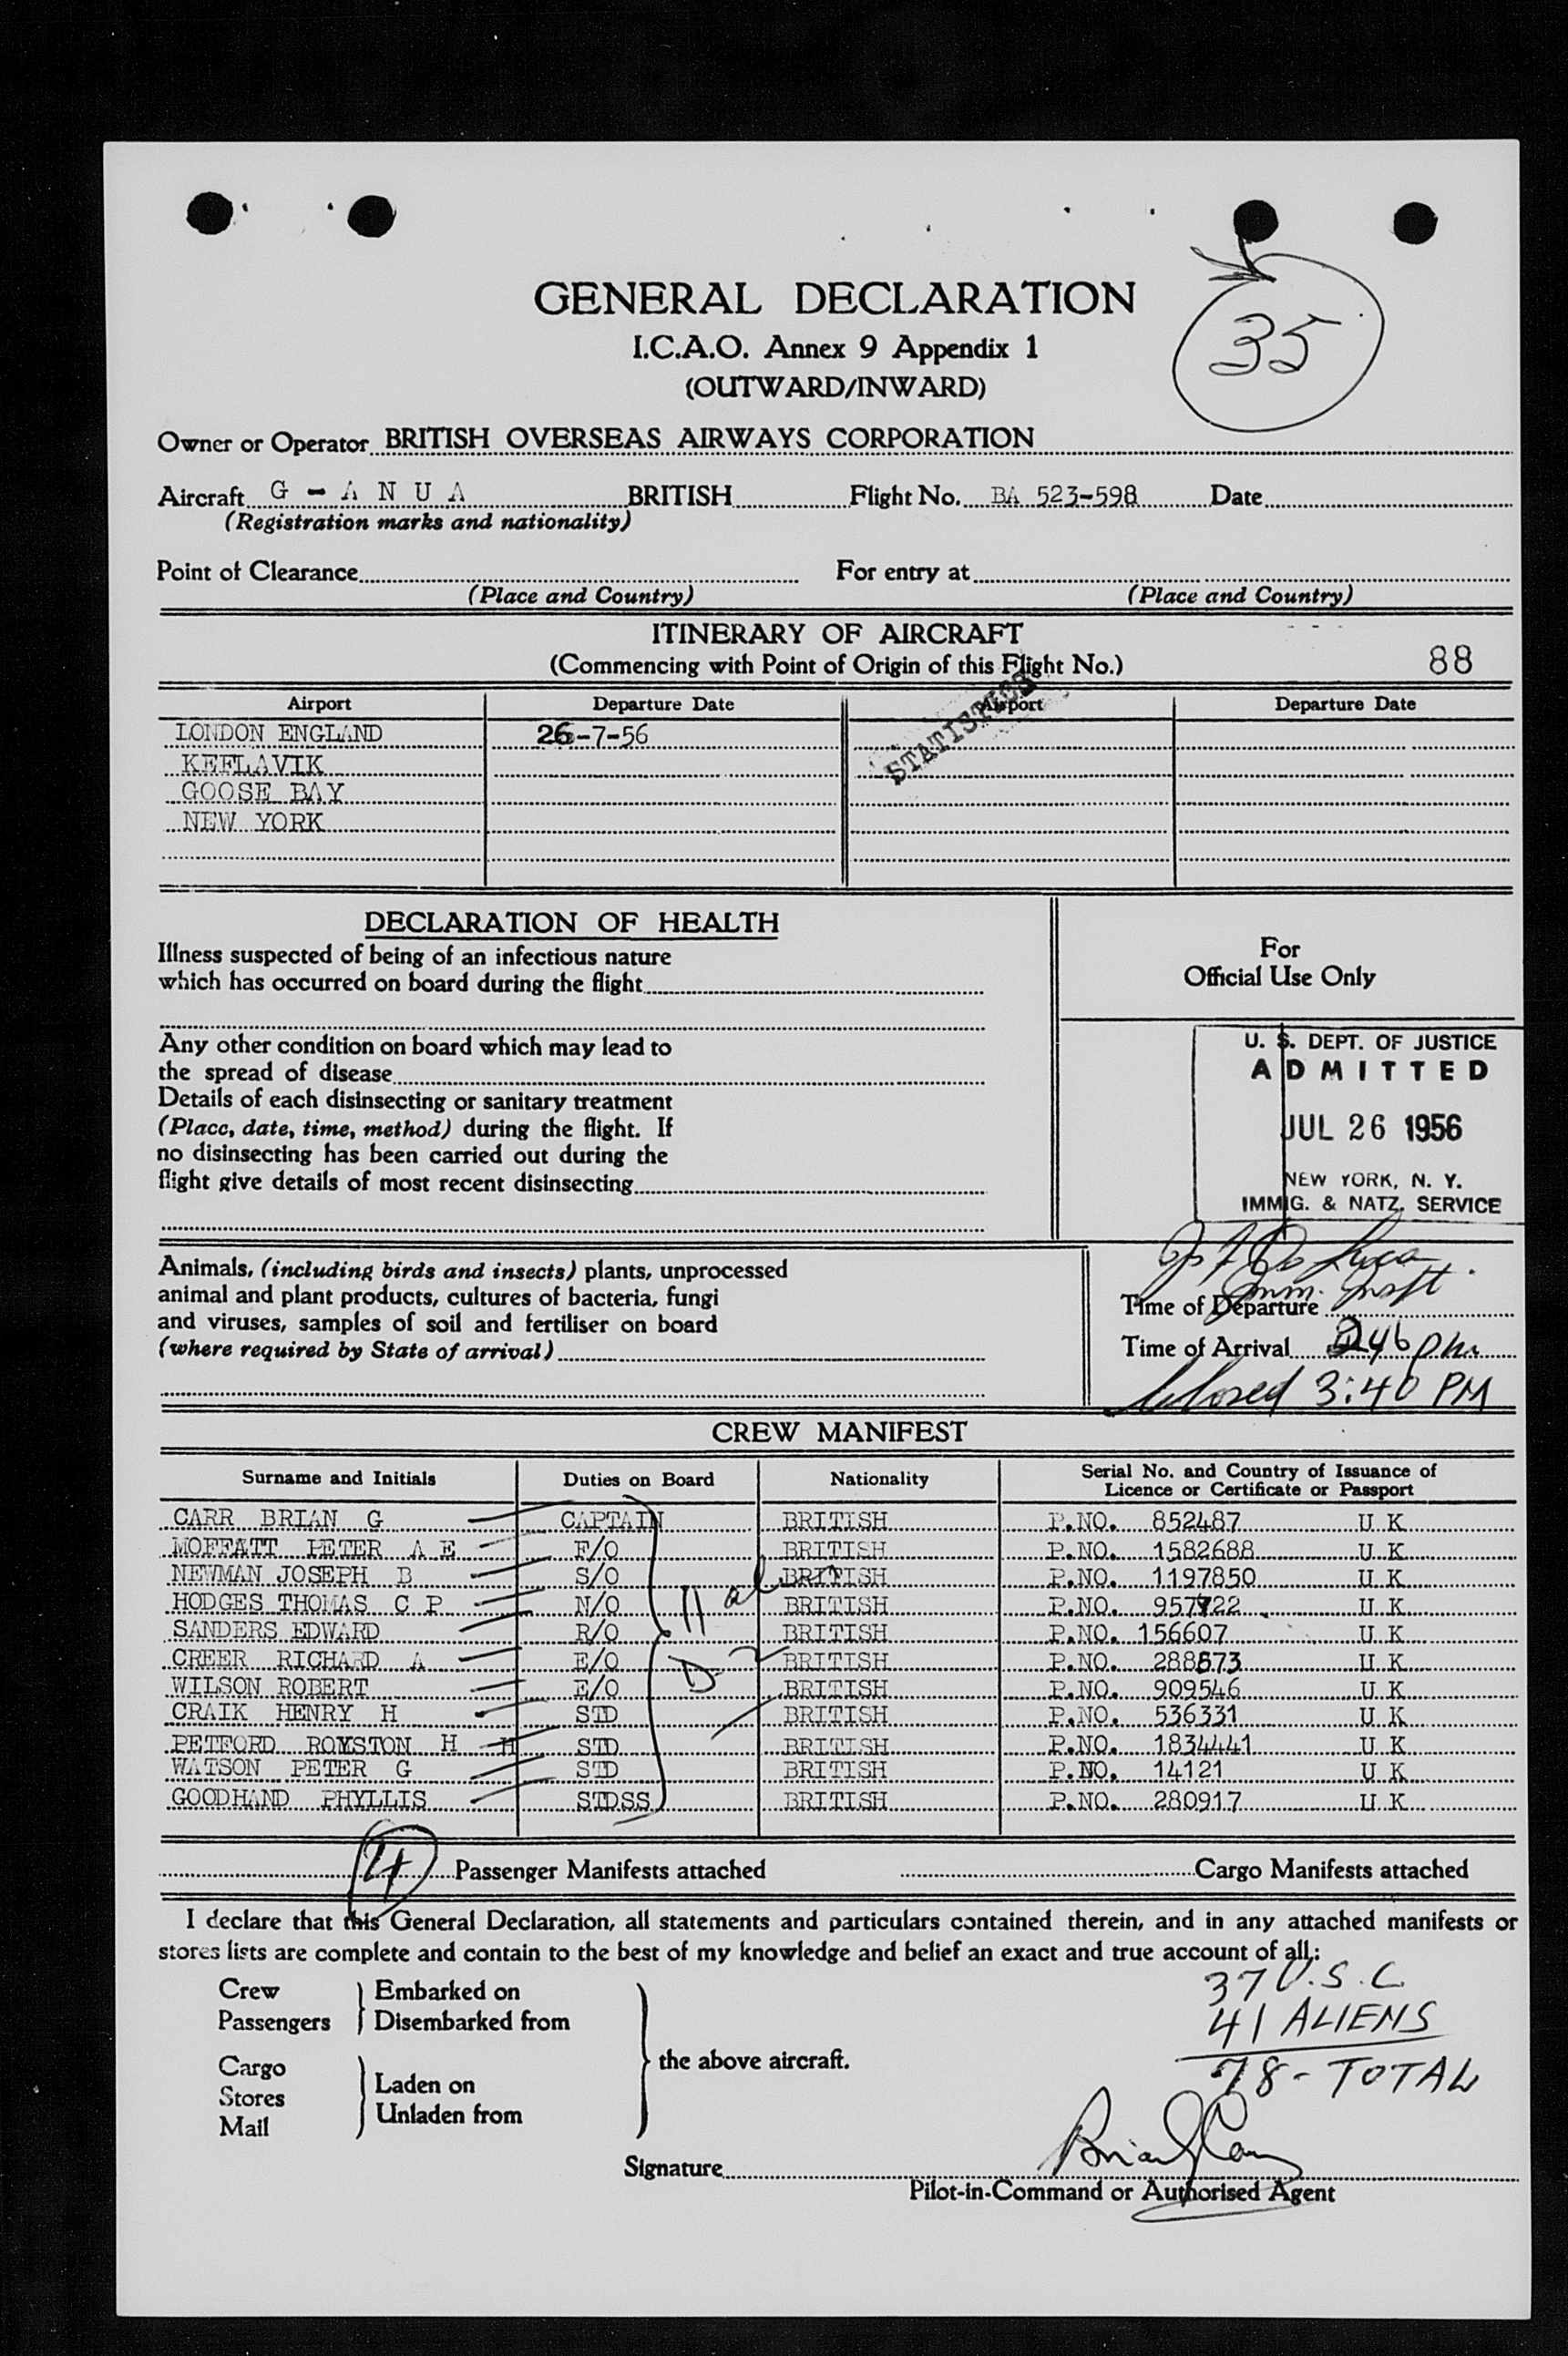 35
GENERAL DECLARATION
I.C.A.O. Annex 9 Appendix 1
(OUTWARD/INWARD)
Owner or Operator BRITISH OVERSEAS AIRWAYS CORPORATION
Aircraft G - A N U A BRITISH Flight No. BA 523-598 Date
(Registration marks and nationality)
Point of Clearance For entry at
(Place and Country) (Place and Country)
ITINERARY OF AIRCRAFT
(Commencing with Point of Origin of this Flight No.) 88
Airport Departure Date Airport Departure Date
STATISTICS
LONDON ENGLAND 26-7-56
KEFLAVIK
GOOSE BAY
NEW YORK
DECLARATION OF HEALTH
Illness suspected of being of an infectious nature
which has occurred on board during the flight
Any other condition on board which may lead to
the spread of disease
Details of each disinsecting or sanitary treatment
(Place, date, time, method) during the flight. If
no disinsecting has been carried out during the
flight give details of most recent disinsecting
For
Official Use Only
U. S. DEPT. OF JUSTICE
ADMITTED
JUL 26 1956
NEW YORK, N. Y.
IMMIG. & NATZ. SERVICE
Imm. Inspt.
Animals, (including birds and insects) plants, unprocessed
animal and plant products, cultures of bacteria, fungi
and viruses, samples of soil and fertiliser on board
(where required by State of arrival)
Time of Departure
Time of Arrival 246 pm
Closed 3:40 PM
CREW MANIFEST
Surname and Initials Duties on Board Nationality Serial No. and Country of Issuance of
Licence or Certificate or Passport
CARR BRIAN G CAPTAIN BRITISH P.NO. 852487 U K
MOFFATT PETER A E F/O BRITISH P.NO. 1582688 U K
NEWMAN JOSEPH B S/O BRITISH P.NO. 1197850 U K
HODGES THOMAS C P N/O BRITISH P.NO. U K
SANDERS EDWARD R/O BRITISH P.NO. 156607 U K
CREER RICHARD A E/O BRITISH P.NO. 288673 U K
WILSON ROBERT E/O BRITISH P.NO. 909546 U K
CRAIK HENRY H STD BRITISH P.NO. 536331 U K
PETFORD ROYSTON H H STD BRITISH P.NO. 1834441 U K
WATSON PETER G STD BRITISH P.NO. 14121 U K
GOODHAND PHYLLIS STDSS BRITISH P.NO. 280917 U K
11 al
D-2
4 Passenger Manifests attached Cargo Manifests attached
I declare that this General Declaration, all statements and particulars contained therein, and in any attached manifests or
stores lists are complete and contain to the best of my knowledge and belief an exact and true account of all:
37 U.S.C
41 ALIENS
78 - TOTAL
Crew Embarked on
Passengers Disembarked from
the above aircraft.
Cargo
Stores Laden on
Mail Unladen from
Signature Brian G Carr
Pilot-in-Command or Authorised Agent